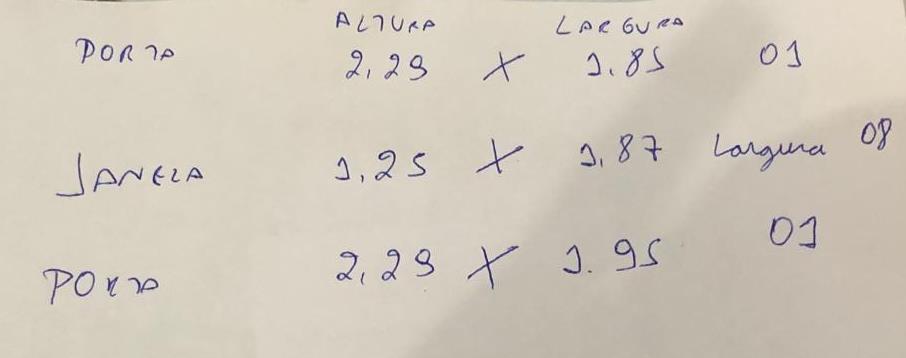 ALTURA LARGURA
PORTA 2,29 X 1.85 01
JANELA 1,25 X 1,87 Largura 08
PORTA 2,29 X 1.95 01